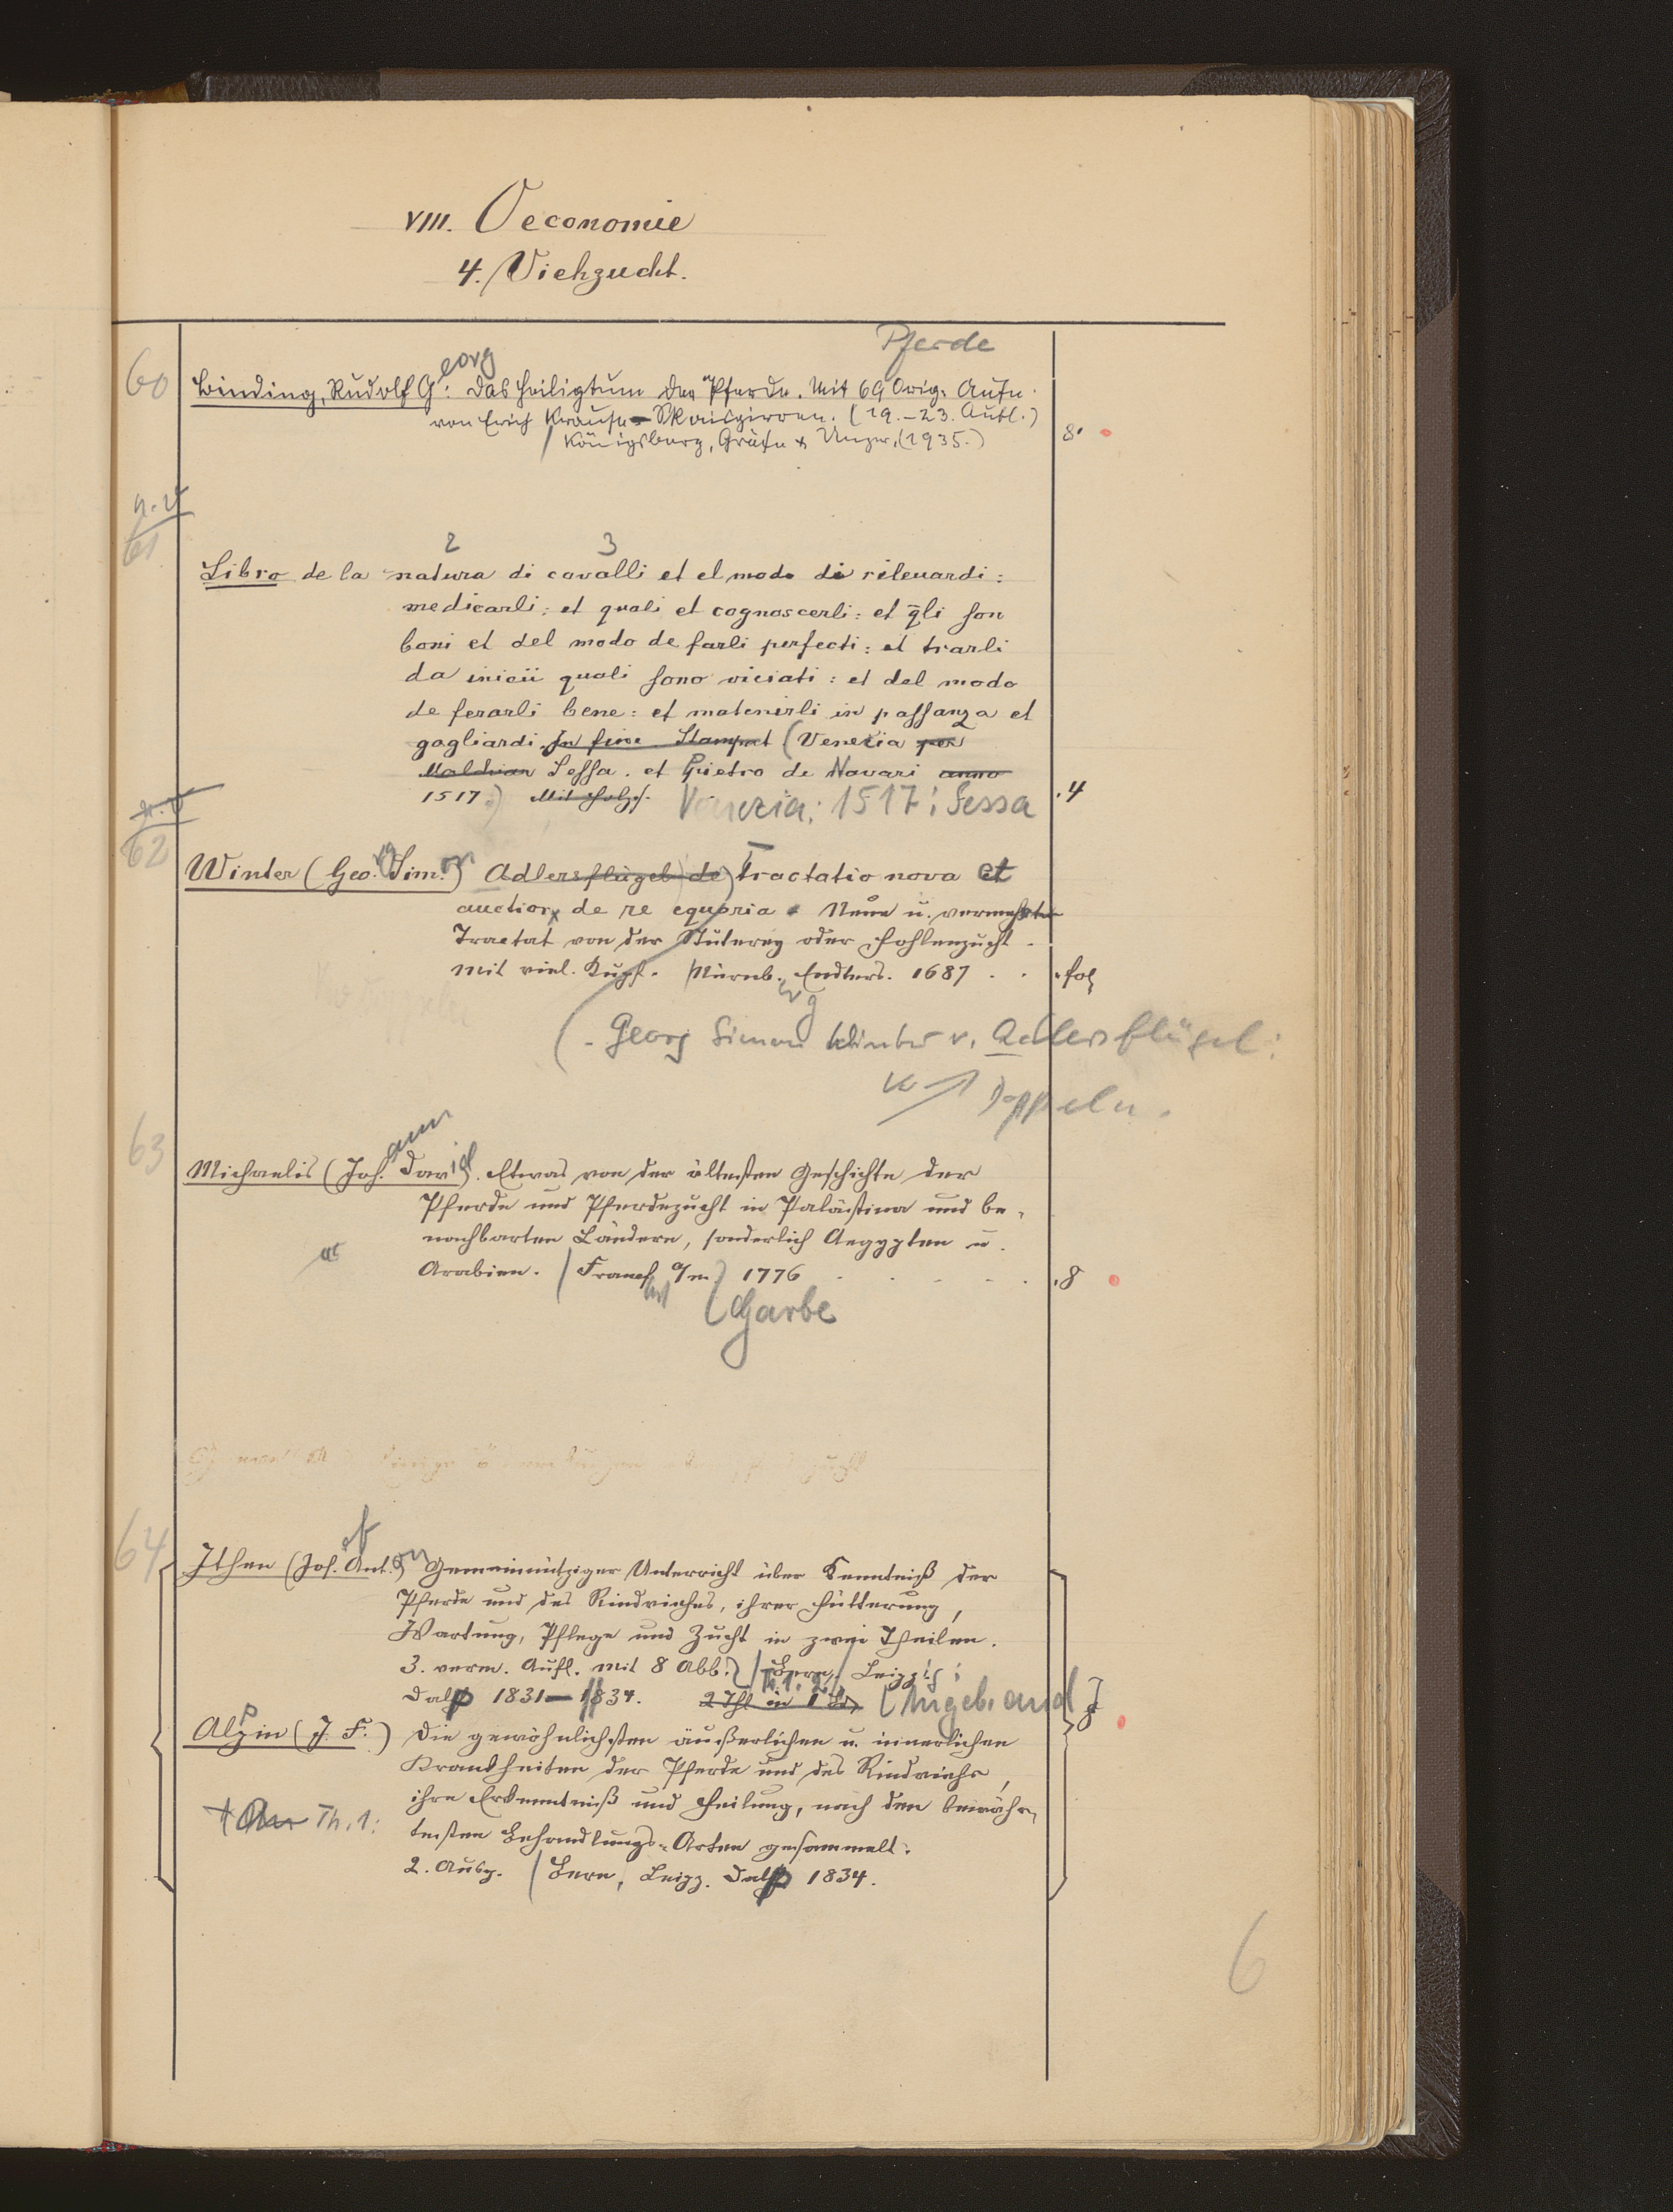 VIII. Oeconomie
4. Viehzucht.
Pferde
60
Binding, Rudolf Georg: Das Heiligtum der Pferde. Mit 69 Orig. Aufn.
von Erich Krause-Skaisgirren. (19.-23. Aufl.)
Königsberg, Gräfe & Unzer, (1935.)
8°
n. v
61
2 3
Libro de la natura di cavalli et el modo di rileuardi:
medicarli: et quali et cognoscerli: et q̄li son
boni et del modo de farli perfecti: et trarli
da inicii quali sono viciati: et del modo
de ferarli bene: et matenirli in possanza et
gagliardi. In fine. Stampat (Venezia per
Sessa. et Pietro de Navari anno
1517.) Mit Holzs. Venezia: 1517: Sessa
.4
n. v
62
Winter (Georg Simon) Adlersflügel de) Tractatio nova et
auctior de re equaria. Neue u. vermehrte
Tractat von der Stuterey oder Fohlenzucht.
Mit viel. Kupf. Nürnberg. Endters. 1687 . .
.fol
(- Georg Simon Winter v. Adlersflügel:
Doppeln.
63
Michaelis (Johann David). Etwas von der ältesten Geschichte der
Pferde und Pferdezucht in Palästina und be-
nachbarten Ländern, sonderlich Aegypten u.
Arabien. (Francf a/m.) 1776
.8
(Garbe
64
Ithen (Josef Anton) Gemeinnütziger Unterricht über Kenntniß der
Pferde und des Rindviehes, ihrer Fütterung,
Wartung, Pflege und Zucht in zwei Theilen.
3. verm. Aufl. mit 8 Abb. Bern, Leipzig;
Th. 1. 2.
Dalp 1831-1834. 2 Thl in 1 Bd. (Angeb. and
Alpin (J. F.) Die gewöhnlichsten äußerlichen u. innerlichen
Krankheiten der Pferde und des Rindviehs,
ihre Erkenntniß und Heilung, nach den bewähr-
Th. 1:
testen Behandlungs-Arten gesammelt.
2. Ausg. (Bern, Leipz. Dalp 1834.
6